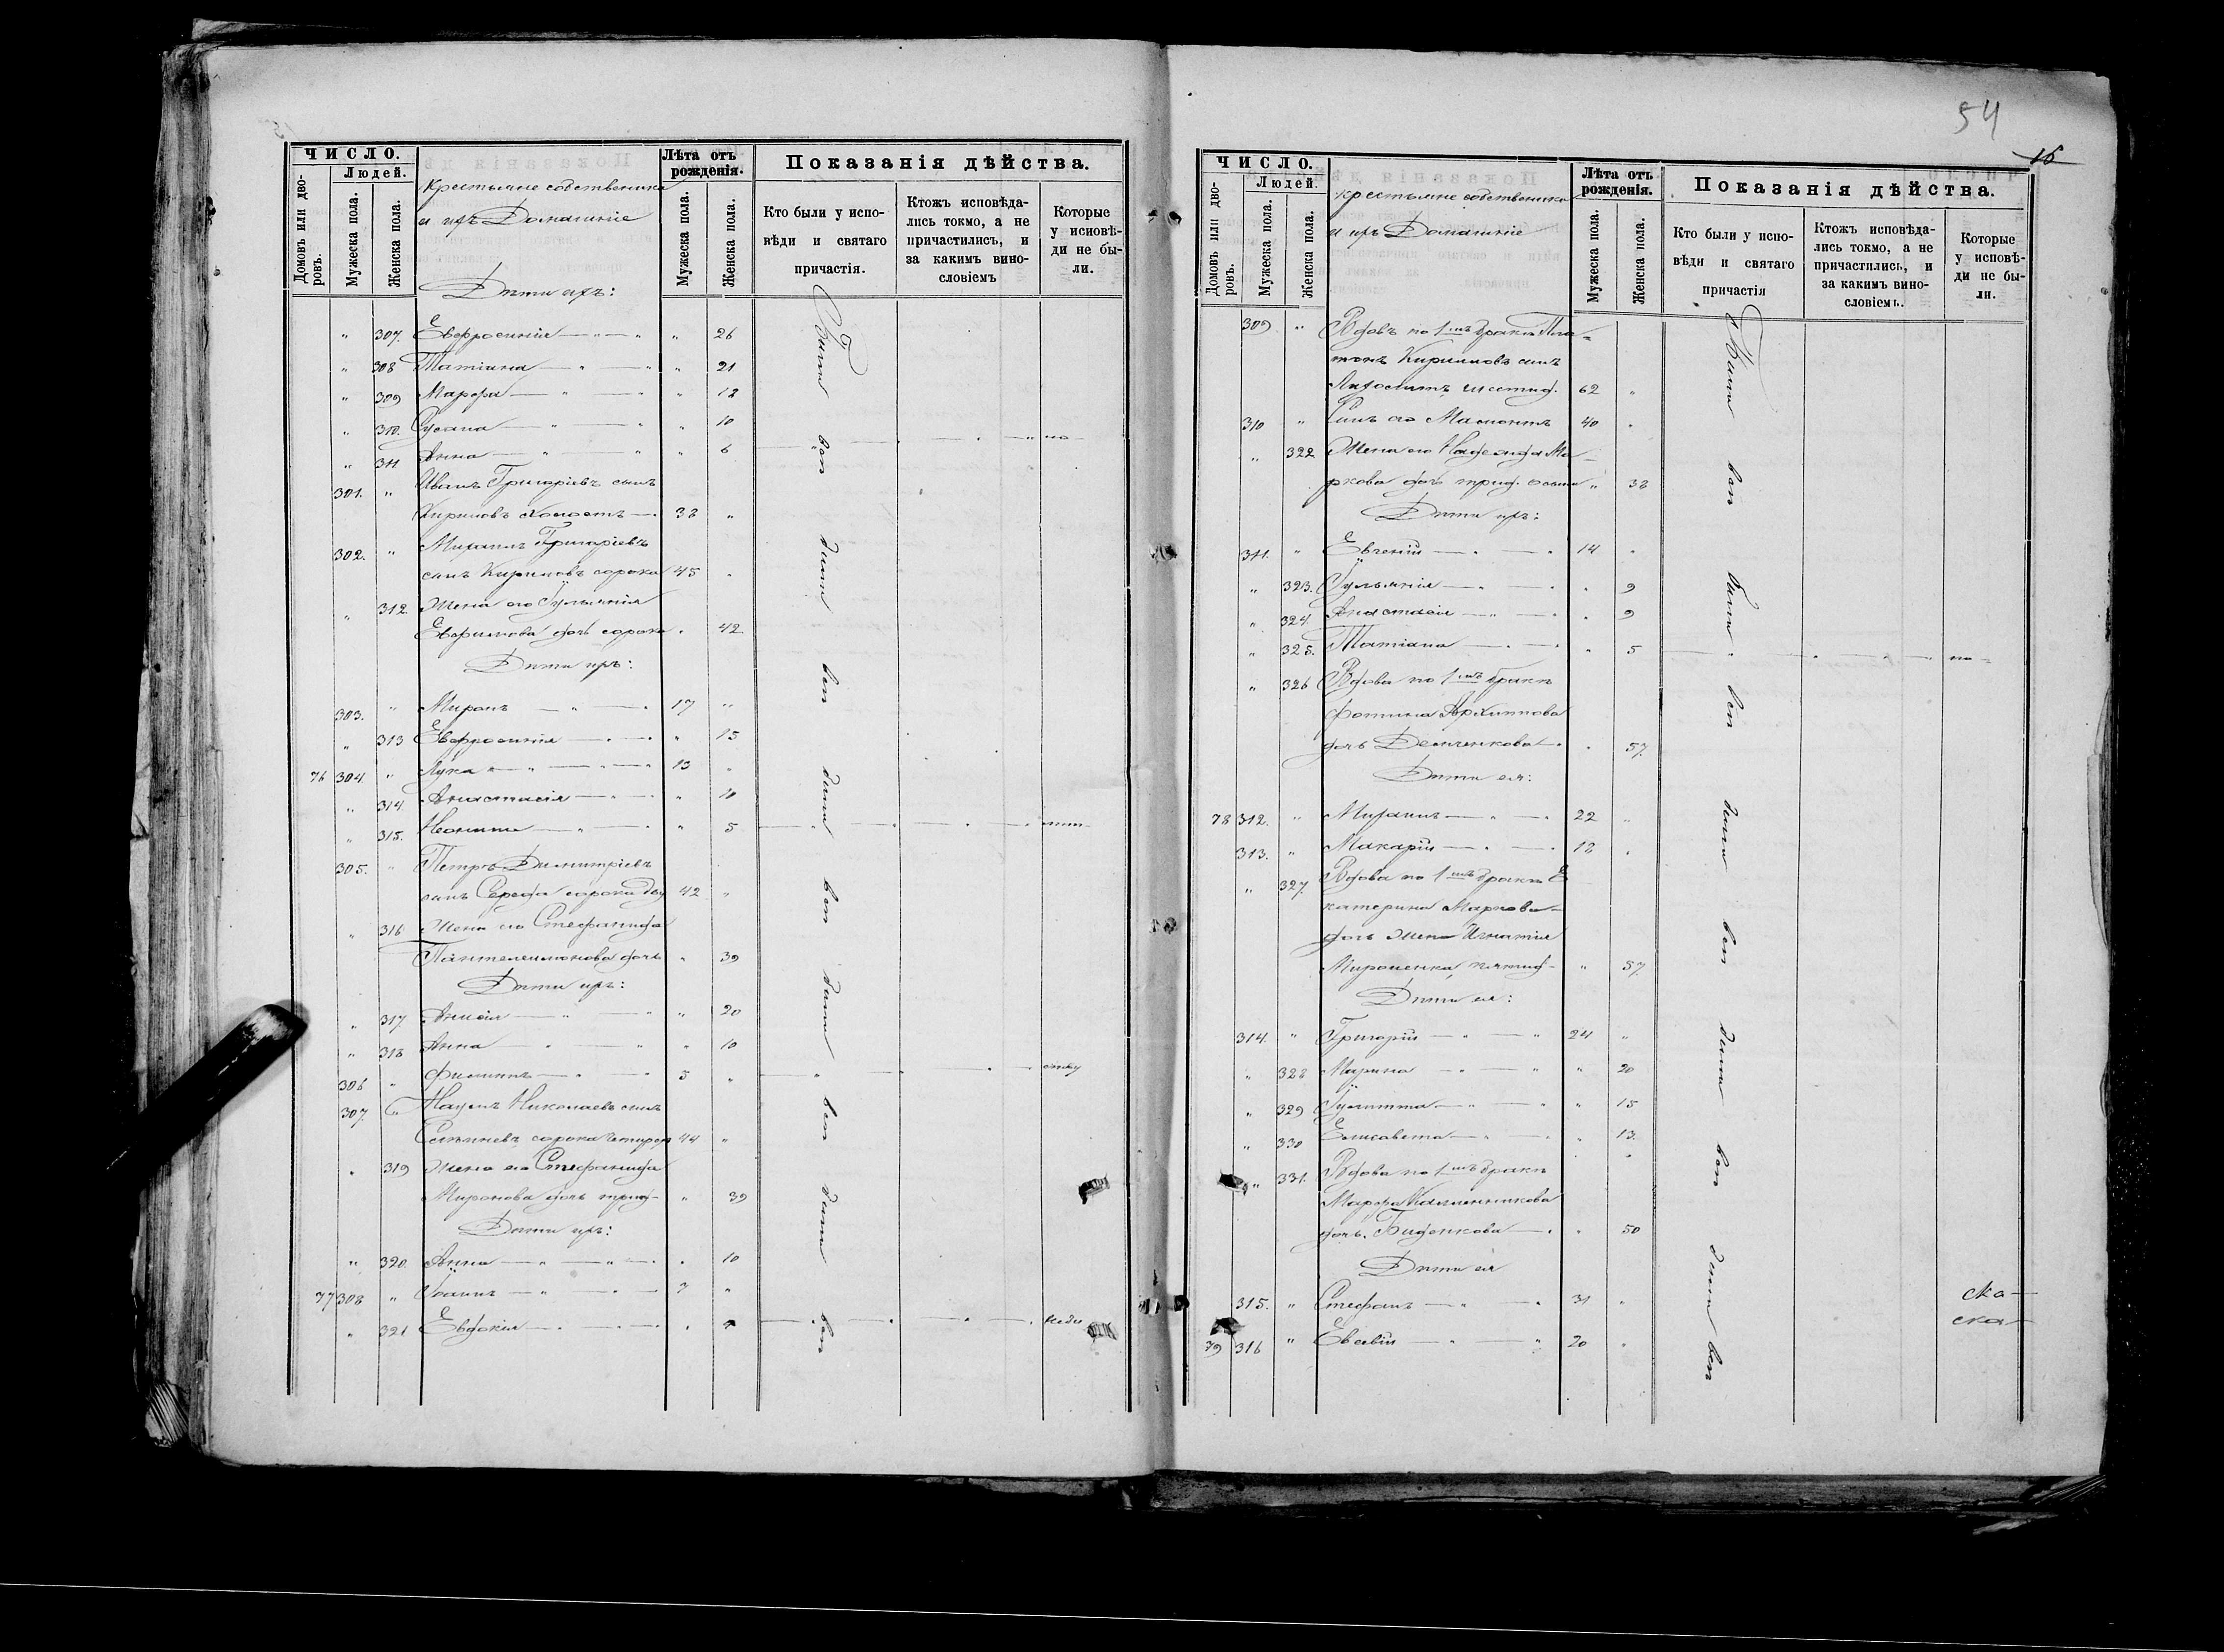 54
16
ЧИСЛО.
Людей.
Домовъ или дворовъ.
Мужеска пола.
Женска пола.
Крестьяне собственики
и ихъ Домашніе
Лѣта отъ рожденія.
Мужеска пола.
Женска пола.
Показанія дѣйства.
Кто были у исповѣди и святаго причастія.
Ктожъ исповѣдались токмо, а не причастились, и за какимъ винословіемъ
Которые у исповѣди не были.
Дѣти ихъ:
" 307. Евфросинія " " 26
" 308 Татіана " " 21
" 309 Марфа " " 12
" 310. Сусана " " 10
" 311 Анна " " 6
301. " Иванъ Григоріевъ сынъ
Кириловъ холостъ 38 "
302. " Михаилъ Григоріевъ
сынъ Кириловъ сорока 45 "
" 312. Жена его Іульянія
Ефимова дочь сорока " 42
Дѣти ихъ:
303. " Миронъ " 17 "
" 313 Евфросинія " " 15
76 304. " Лука " 13 "
" 314 Анастасія " " 10
" 315. Неонила " " 5
305. " Петръ Димитріевъ
сынъ Середа сорока дву 42 "
" 316 Жена его Стефанида
Пантелеимонова дочь " 39
Дѣти ихъ:
" 317 Анисія " " 20
" 318 Анна " " 10
306 " Филипъ " 5 "
307. " Наумъ Николаевъ сынъ
сорока четырех 44 "
" 319 Жена его Стефанида
Миронова дочь трид- " 39
Дѣти ихъ:
" 320. Анна " " 10
77 308 " Іоаннъ " 7 "
" 321 Евдокія "
Были вси
ЧИСЛО.
Людей.
Домовъ или дворовъ.
Мужеска пола.
Женска пола.
Крестьяне собственики
и ихъ Домашніе
Лѣта отъ рожденія.
Мужеска пола.
Женска пола.
Показанія дѣйства.
Кто были у исповѣди и святаго причастія
Ктожъ исповѣдались токмо, а не причастились, и за какимъ винословіемъ.
Которые у исповѣди не были.
309 " Вдовъ по 1мъ бракѣ Пла-
тонъ Кириловъ сынъ
шестид. 62 "
310 " Сынъ его Мамонтъ 40 "
" 322 Жена его Надежда Ма-
ркова дочь трид. осьми " 38
Дѣти ихъ:
311. " Евгеній " 14 "
" 323. Іульянія " " 9
" 324. Анастасія " " 9
" 325. Татіана " " 5
" 326 Вдова по 1мъ бракѣ
Фотина Архипова
дочь Демченкова " 57
Дѣти ея:
78 312. " Михаилъ " 22 "
313. " Макарій " 18 "
" 327. Вдова по 1мъ бракѣ Е
катерина Маркова
дочь жена Игнатія
Мироненка пятид- " 57
Дѣти ея:
314. " Григорій " 24 "
" 328 Марина " " 20
" 329 Іулитта " " 15
" 330 Елисавета " " 13.
" 331. Вдова по 1мъ бракѣ
Марфа Калинникова
дочь Биденкова " 50
Дѣти ея
315. " Стефанъ " 31 "
79 316 " Евсевій " 20 "
Были вси